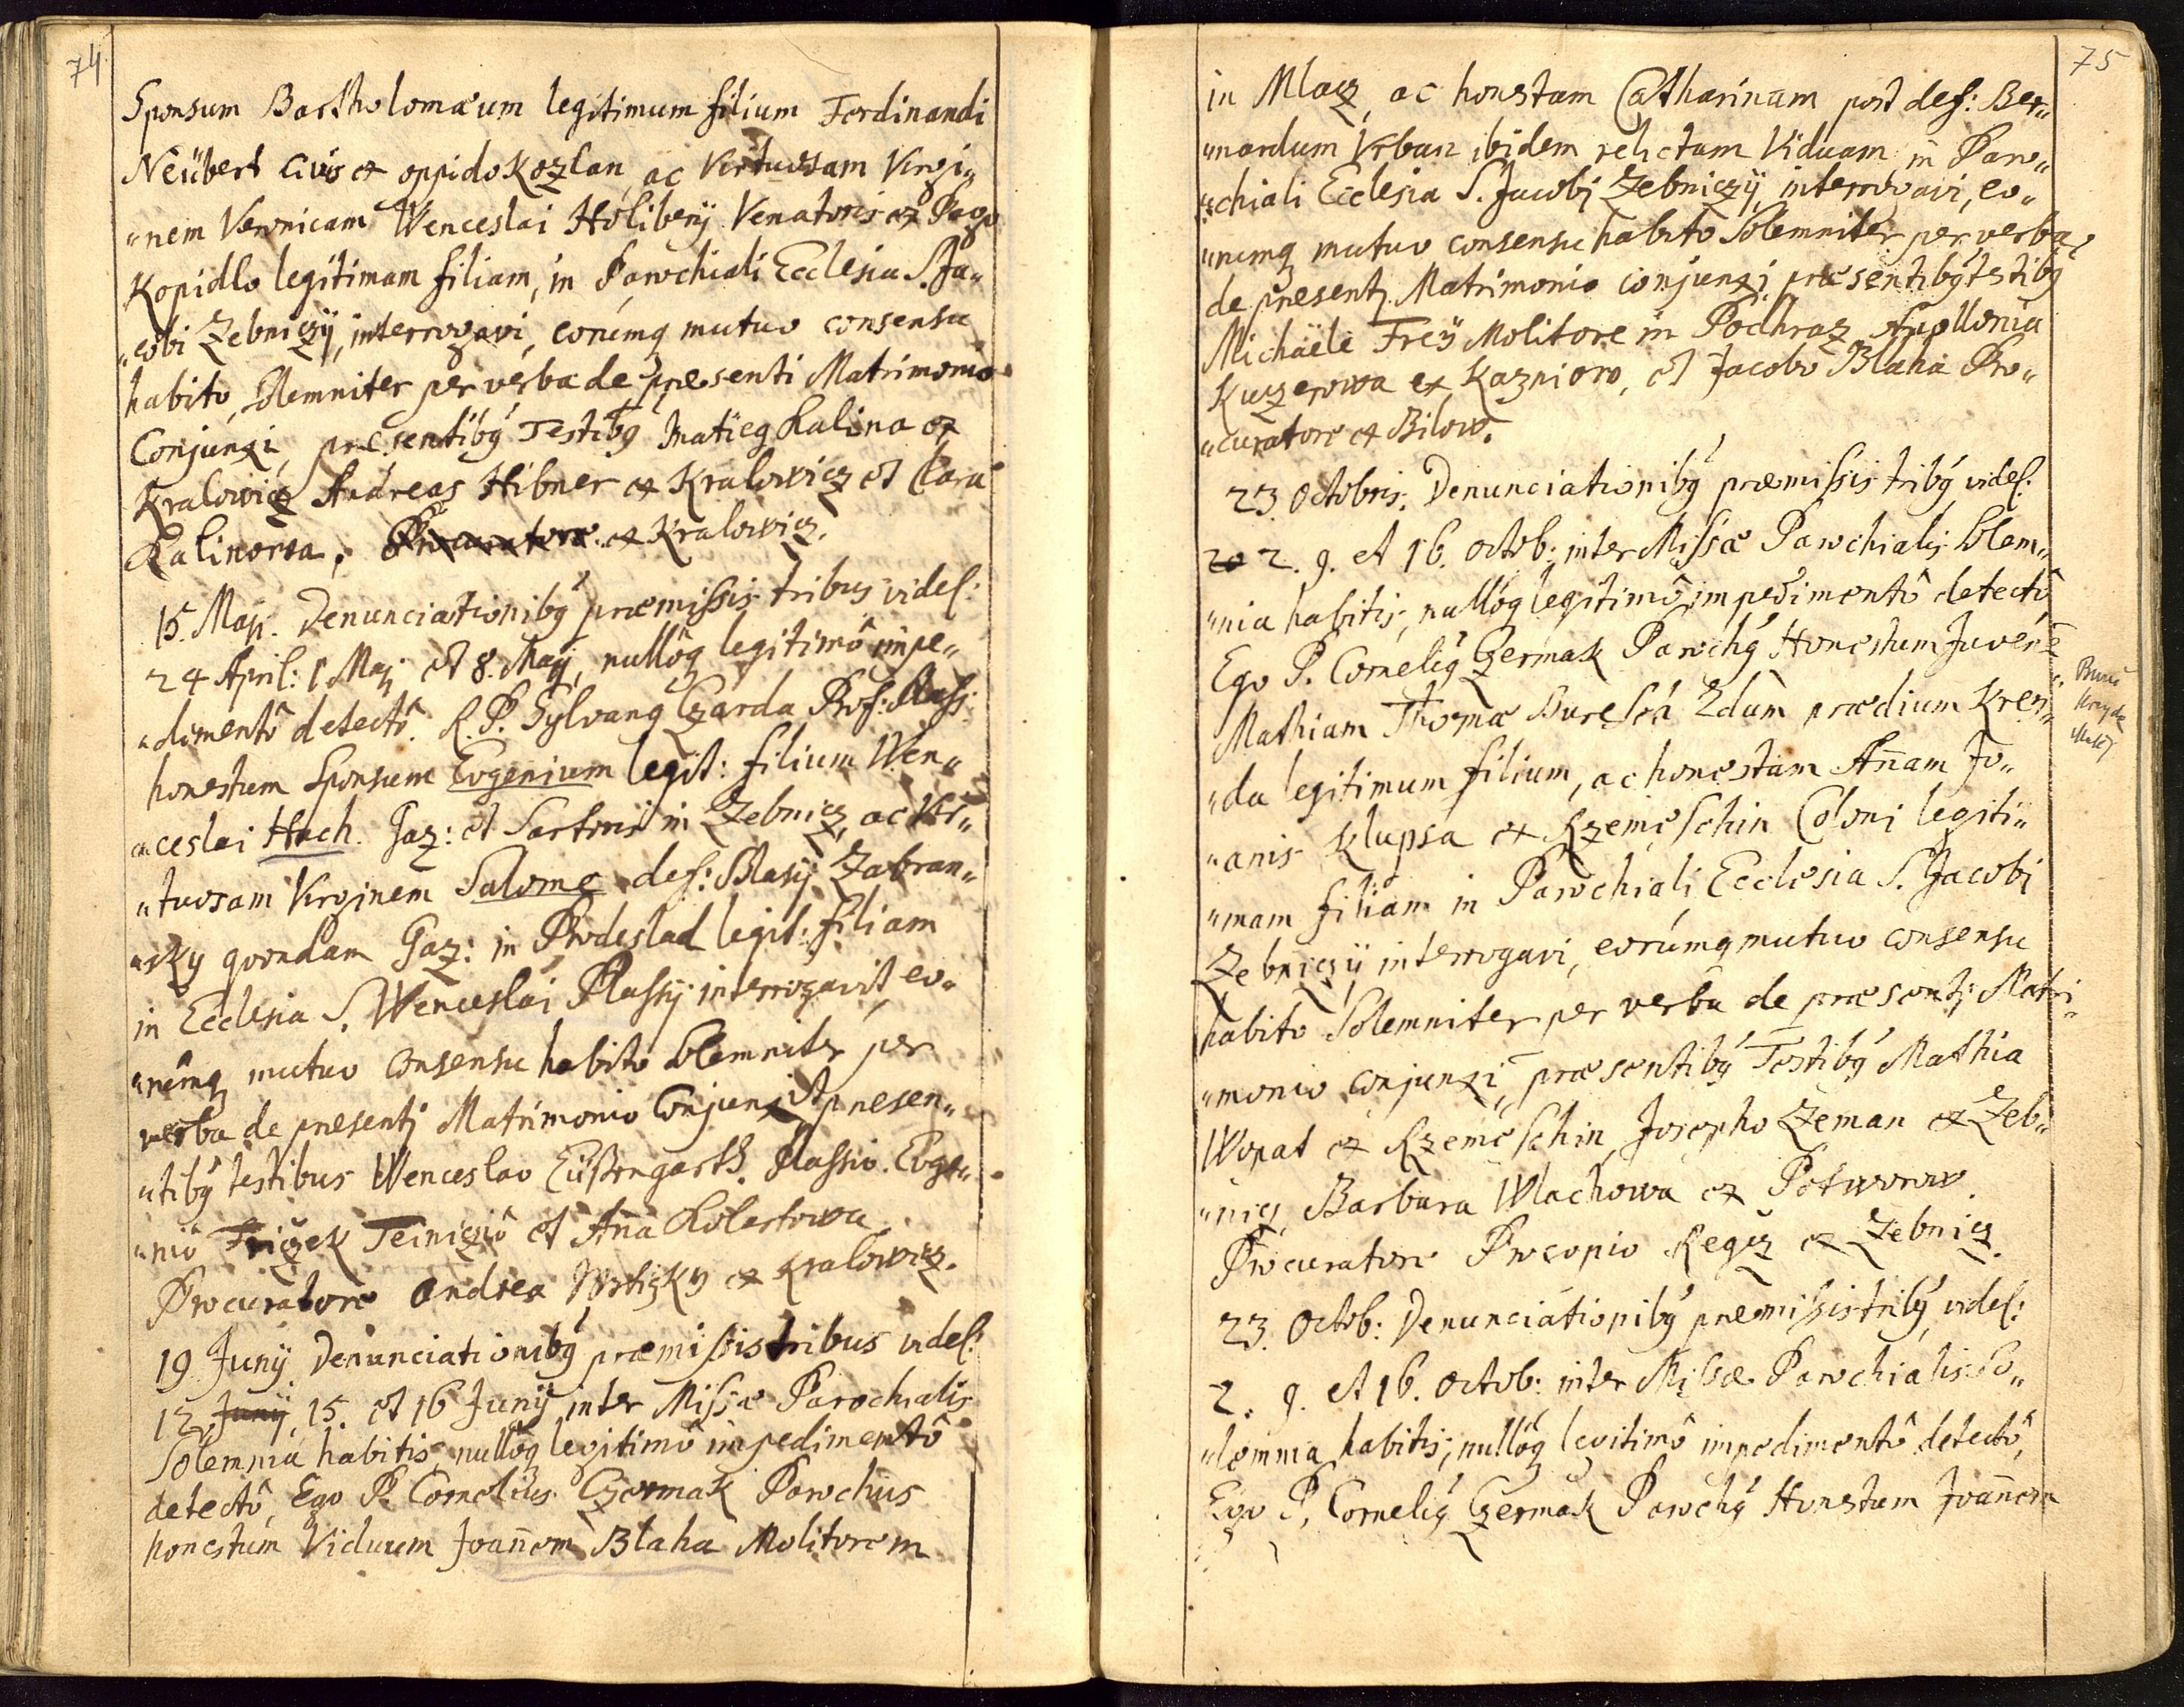 74
Sponsum Bartholomæum legitimum filium Ferdinandi
Neübert Civis ex oppido Kozlan, ac Virtuosam Virgi„
„nem Veronicam Wenceslai Holibeny Venatoris ex Pago
Kopidlo legitimam filiam, in Parochiali Ecclesia S. Ja„
„cobi Zebniczÿ, interrogavi, eorúmq mutuo consensu
habito, Solemniter per verba de præsenti Matrimonio
Conjunxi, præsentibý Testibý Matieg Kalina ex
Kralowicz Andreas Hibner ex Kralowicz et Clara
Kalinowa, Procuratore ex Kralowicz.
15. Maji. Denunciationibý præmissis tribus videl:
24 April: 1 Maj et 8. Maÿ, nullôq legitimô impe„
„dimentô detectô. R. P. Sylvang Czarda Prof: Plass:
honestum Sponsum Eugenium legit: filium Wen„
„ceslai Hach. Gaz: et Sartoris in Zebnicz, ac Vir„
„tuosam Virginem Salome def: Blasij Zabran„
„sky quondam Gaz: in Prodeslad legit: filiam
in Ecclesia S. Wenceslai Plassÿ interrogavit, eo„
„rúmq mutuo consensu habito Solemniter per
verba de presentj Matrimonio Conjunxit, presen„
„tibý testibus Wenceslao Eüßengarth Plassio. Euge„
„niô Friczek Teiniczió et Aña Kolertowa
Procuratore Andrea Wrtizky ex Kralowicz.
19 Junÿ Denunciationibý præmissis tribus videl:
12 Junÿ, 15. et 16 Junÿ inter Missæ Parochialis
Solemnia habitis, nullôq legitimô impedimentô
detectô, Ego P. Cornelius Czermak Parochus
honestum Viduum Joañem Blaha Molitorem
75
in Mlacz, ac honestam Catharinam post def: Ber„
„nardum Urban ibidem relictam Viduam in Paro„
„chiali Ecclesia S. Jacobj Zebniczÿ, interrogavi, eo„
„rumq mutuo consensu habito Solemniter per verba
de presentj Matrimonio conjunxi præsentibý testibý
Michaële Freÿ Molitore in Podhraz Apollonia
Kuczerowa ex Kaznioro, et Jacobo Blaha Pro„
„curatore ex Bilow.
23 Octobris. Denunciationibý præmissis tribý videl:
20 2. 9. et 16. Octob: inter Missæ Parochialis Solem„
„nia habitis, nullôq legitimô impedimentô detectô
Ego P. Cornelig Czermak Parochý Honestum Juvenē
Mathiam Thomæ Bureschi Zdum prædium Krei„
„da legitimum filium, ac honestam Añam Jo„
„anis Klupsa ex Rzemeschin Coloni legiti„
„mam filiam in Parochiali Ecclesia S. Jacobi
Zebniczÿ interrogavi, eorúmq mutuo consensu
habito Solemniter per verba de præsentj Matri„
„monio conjunxi, præsentibý Testibý Mathia
Wopat ex Rzemeschin, Josepho Zeman ex Zeb„
„nicz, Barbara Wlachowa ex Potworow.
Procuratore Procopio Regcz ex Zebnicz.
23. Octob: Denunciationibý præmissis tribý videl:
2. 9. et 16. Octob: inter Missæ Parochialis So„
„lemnia habitis, nullôq legitimô impedimentô detectô,
Ego P. Cornelig Czermak Parochý Honestum Joañem